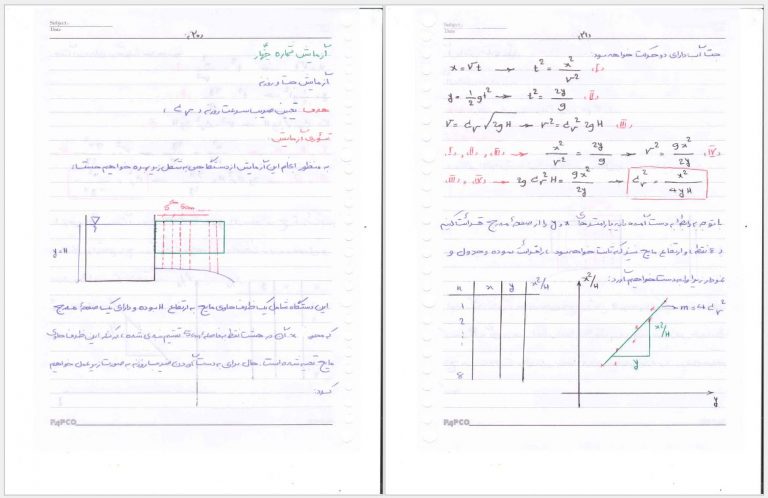 Subject:
Date
«۲۰»
آزمایش شماره چهار
آزمایش جت و روزنه
هدف: تعیین ضریب سرعت روزنه Cv
تئوری آزمایش:
به منظور انجام این آزمایش از دستگاهی به شکل زیر بهره خواهیم جست:
5cm 5cm
y=H
این دستگاه شامل یک ظرف حاوی مایع به ارتفاع H بوده و دارای یک صفحه مدرج
که محور x آن در هشت نقطه به فاصله 5cm تقسیم بندی شده، که کنار این ظرف حاوی
مایع تعبیه شده است. حال برای به دست آوردن ضریب روزنه به صورت زیر عمل خواهیم
کرد:
PAPCO
Subject:
Date
«۲۱»
جت آب دارای دو حرکت خواهد بود:
x = Vt → t² = x²/V² «I»
y = 1/2 gt² → t² = 2y/g «II»
V = Cv √2gH → V² = Cv² 2gH «III»
«I», «II», «III» → x²/V² = 2y/g → V² = gx²/2y «IV»
«III», «IV» → 2g Cv² H = gx²/2y → Cv² = x²/4yH
با توجه به رابطه به دست آمده باید پارامترهای x و y را از صفحه مدرج قرائت کنیم
در ۸ نقطه و ارتفاع مایع نیز که ثابت خواهد بود، را قرائت نموده و جدول و
نمودار زیر را به دست خواهیم آورد:
n x y x²/H
1
2
8
x²/H
m = 4Cv²
x²/H
y
y
PAPCO